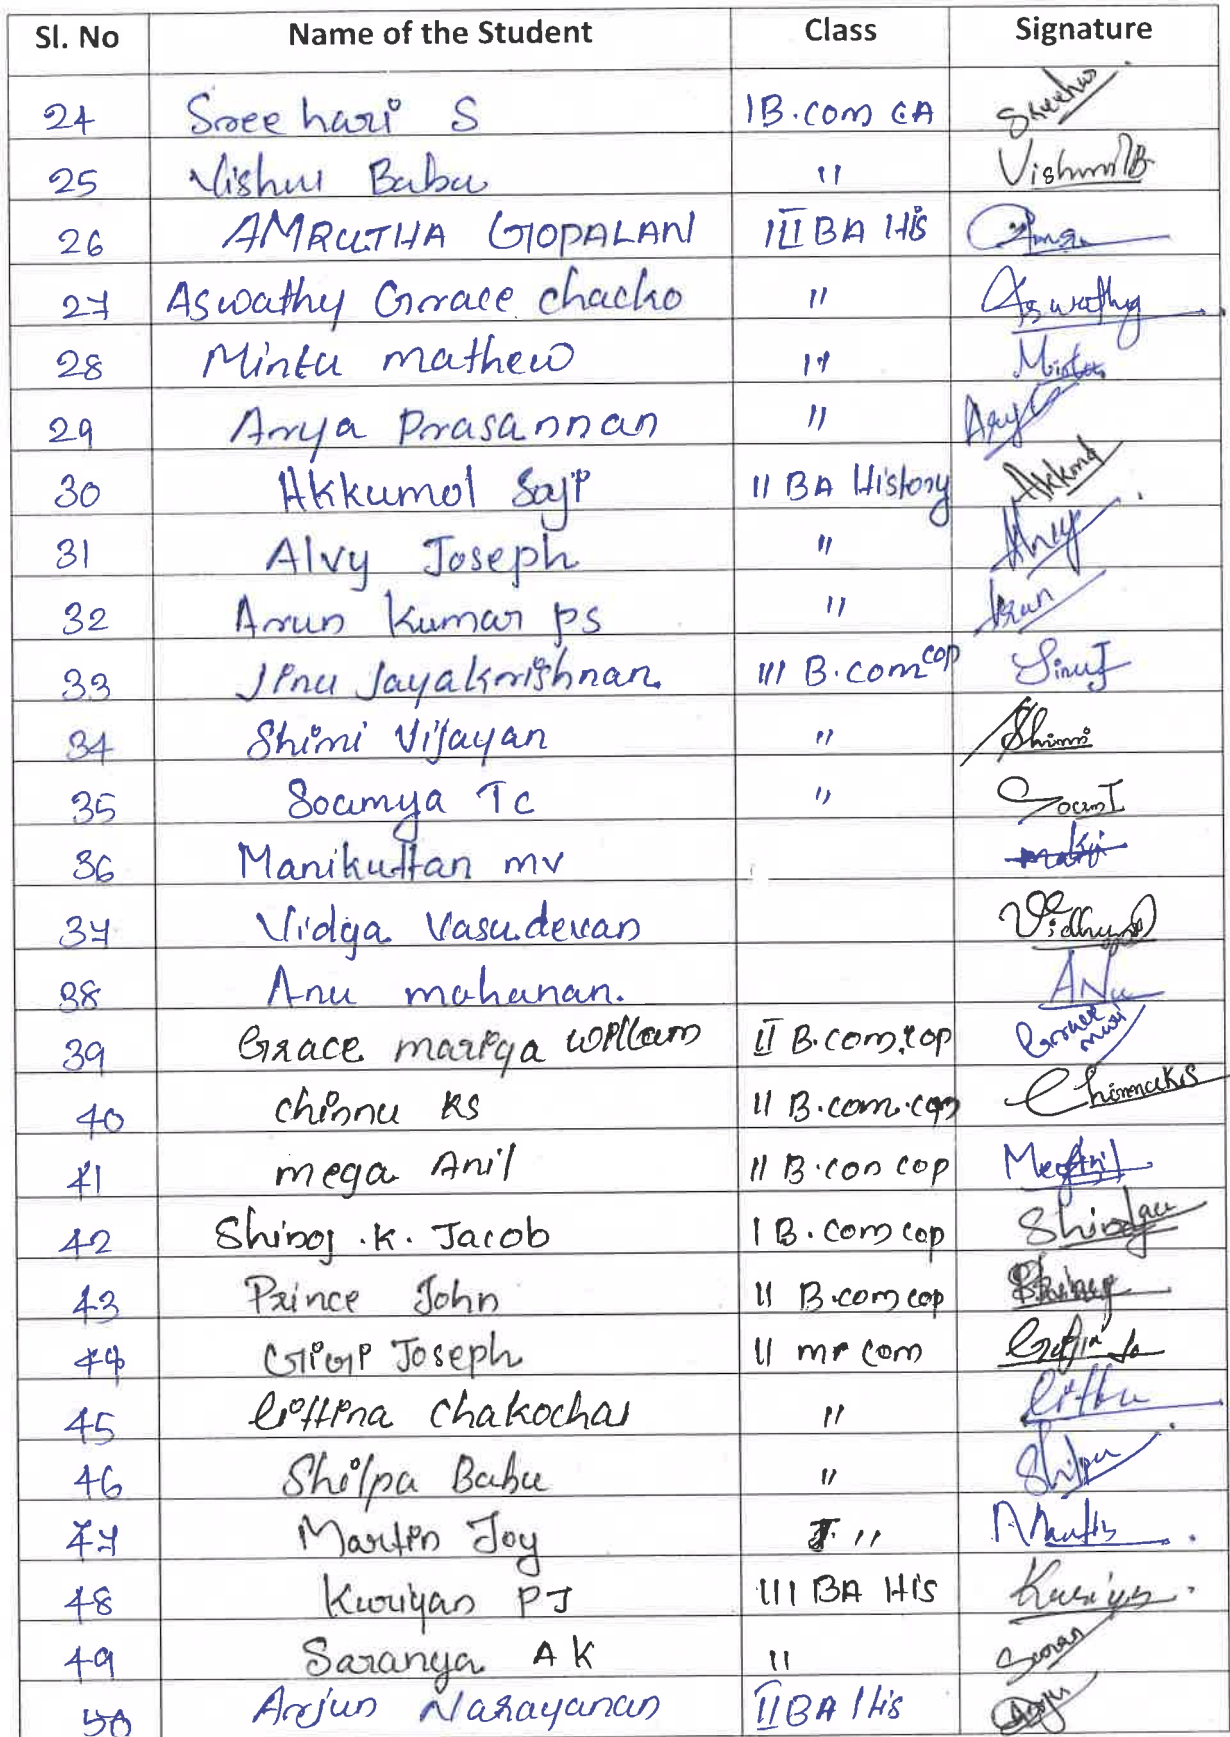 Sl. No Name of the Student Class Signature
24 Sreehari S I B.com CA Sreehari
25 Vishnu Babu " Vishnu B
26 AMRUTHA GOPALAN III BA His
27 Aswathy Grace chacko " Aswathy
28 Mintu mathew " Mintu
29 Arya Prasannan " Arya
30 Akkumol Saji II BA History Akkumol
31 Alvy Joseph "
32 Arun Kumar PS " Arun
33 Jinu Jayakrishnan. III B.com cop Jinu J
34 Shimi Vijayan " Shimi
35 Soumya Tc " Soum T
36 Manikuttan mv
37 Vidya Vasudevan
38 Anu mohanan. ANu
39 Grace mariya william II B.com.cop Grace mari
40 chinnu KS II B.com.cop Chinnu KS
41 mega Anil II B.con cop
42 Shinoj .K. Jacob I B.com cop
43 Prince John II B.com cop Prince
44 GiGi Joseph II mr com
45 Littina Chakocha "
46 Shilpa Babu " Shilpa
47 Martin Joy I "
48 Kuriyan PJ III BA His Kuriyan
49 Saranya A K " Saran
50 Arjun Narayanan II BA His Arju